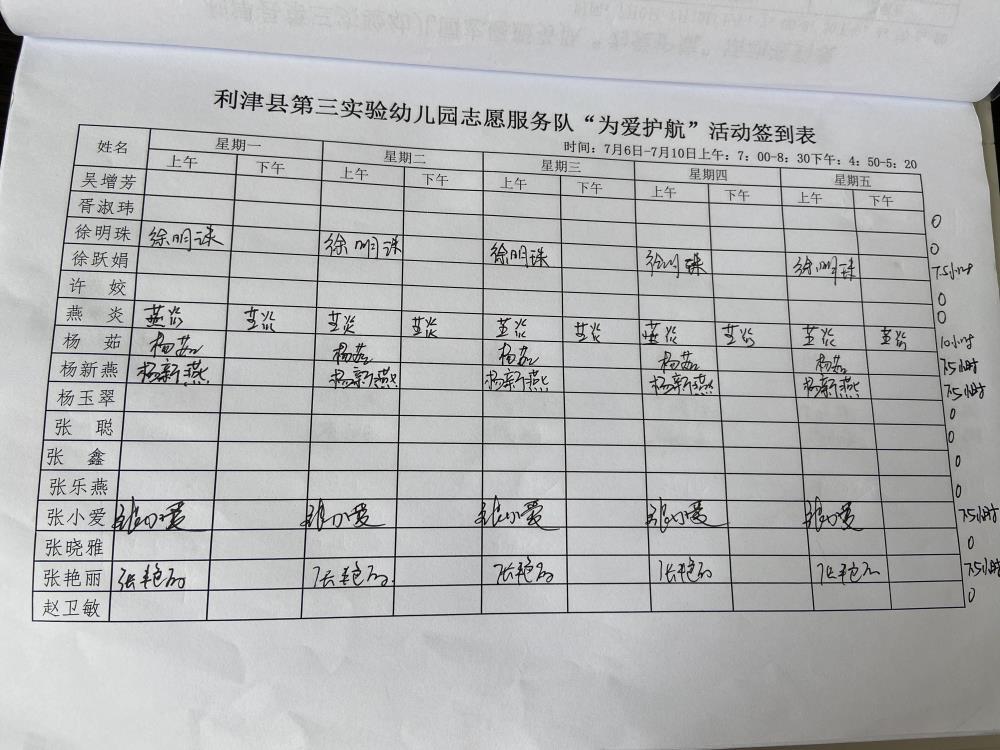 利津县第三实验幼儿园志愿服务队“为爱护航”活动签到表
时间：7月6日-7月10日上午：7：00-8：30下午：4：50-5：20
姓名 星期一 星期二 星期三 星期四 星期五
上午 下午 上午 下午 上午 下午 上午 下午 上午 下午
吴增芳 0
胥淑玮 0
徐明珠 徐明珠 徐明珠 徐明珠 徐明珠 徐明珠 7.5小时
徐跃娟 0
许 姣 0
燕 炎 燕炎 燕炎 燕炎 燕炎 燕炎 燕炎 燕炎 燕炎 燕炎 燕炎 10小时
杨 茹 杨茹 杨茹 杨茹 杨茹 杨茹 7.5小时
杨新燕 杨新燕 杨新燕 杨新燕 杨新燕 杨新燕 7.5小时
杨玉翠 0
张 聪 0
张 鑫 0
张乐燕 0
张小爱 张小爱 张小爱 张小爱 张小爱 张小爱 7.5小时
张晓雅 0
张艳丽 张艳丽 张艳丽 张艳丽 张艳丽 张艳丽 7.5小时
赵卫敏 0